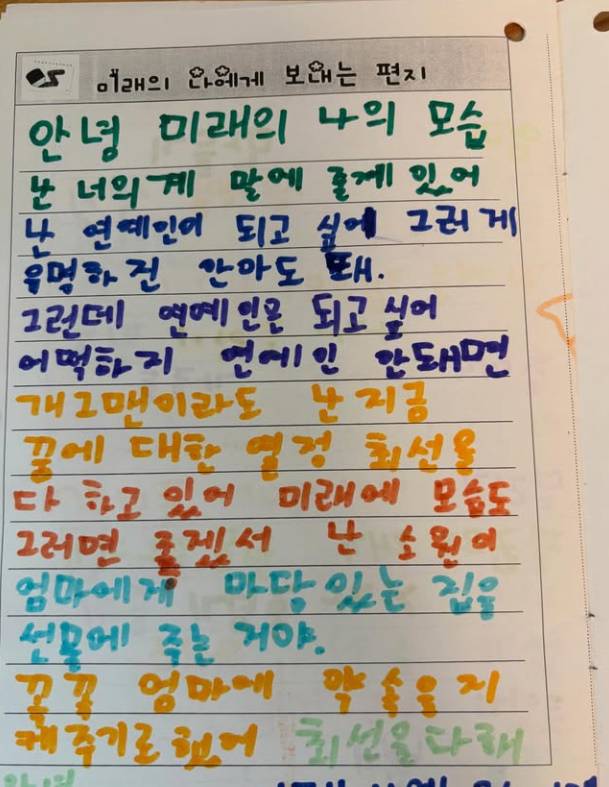 미래의 나에게 보내는 편지
안녕 미래의 나의 모습
난 너의게 말에 줄께 있어
난 연예인이 되고 싶어 그러게
유명하진 안아도 돼.
그런데 연예인은 되고 싶어
어떡하지 연예인 안돼면
개그맨이라도 난 지금
꿈에 대한 열정 최선을
다 하고 있어 미래에 모습도
그러면 좋겠서 난 소원이
엄마에게 마당 있는 집을
선물에 주는 거야.
꼭꼭 엄마에 약속을 지
켜주기로 했어 최선을 다해